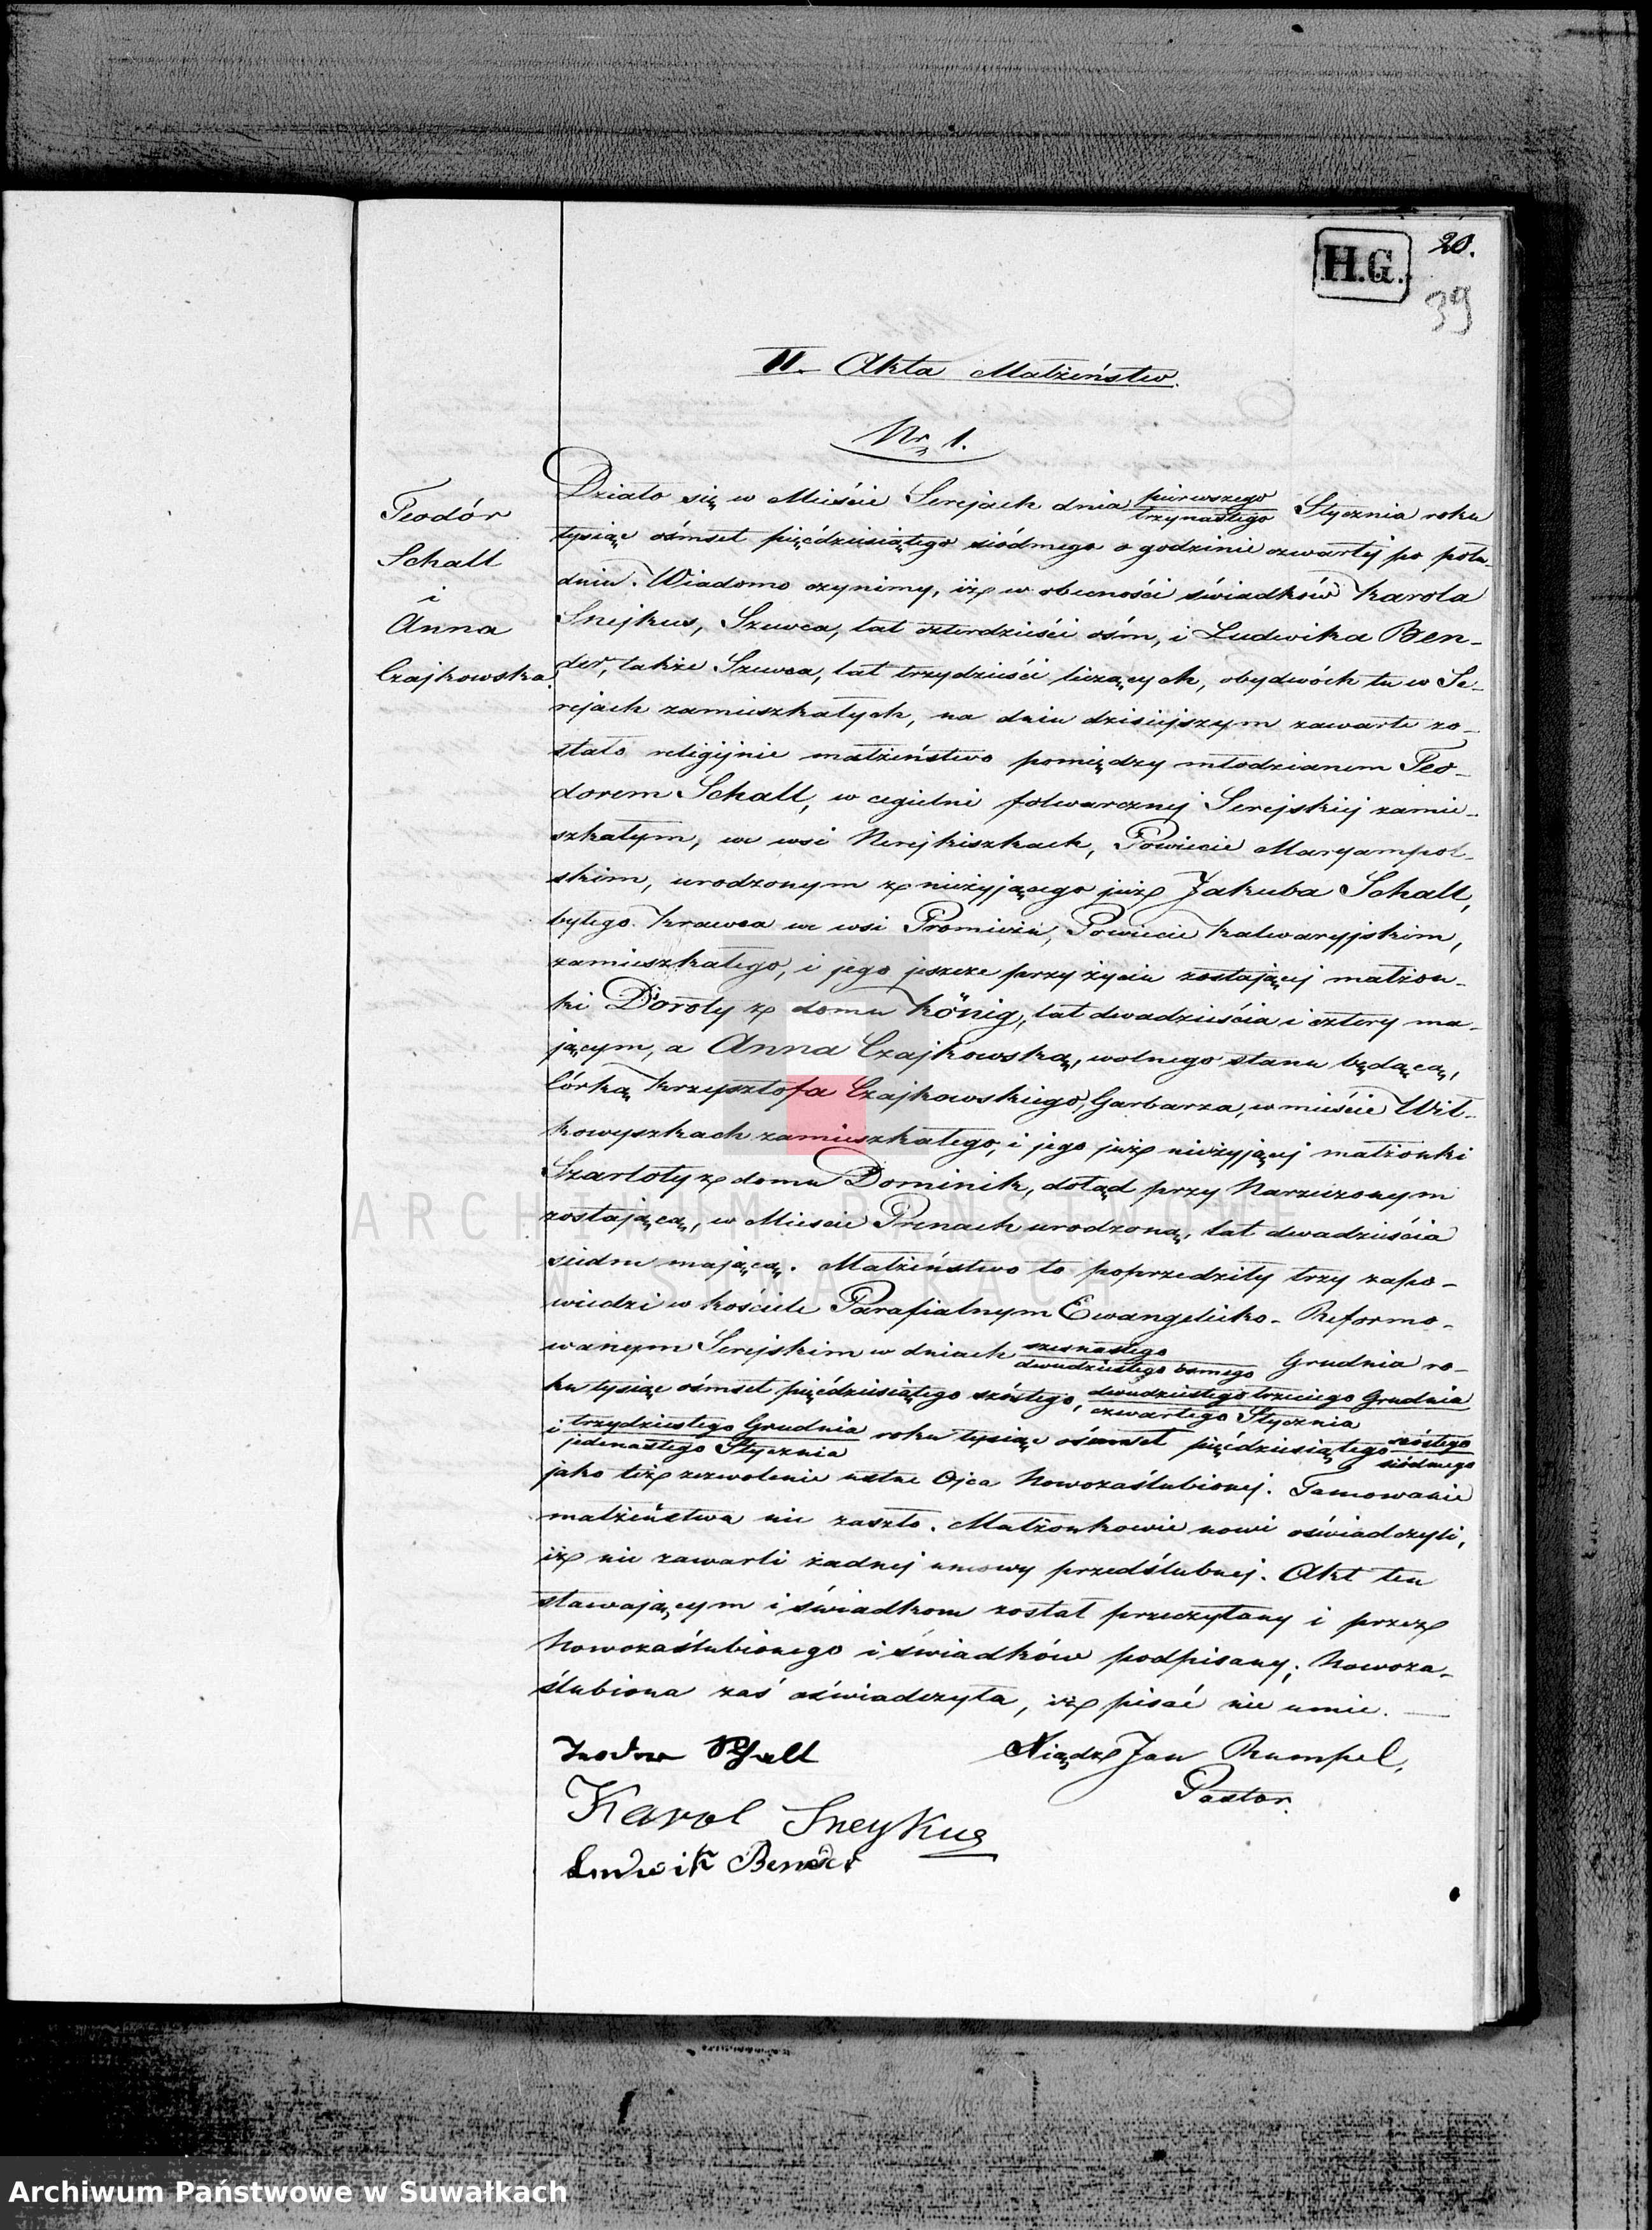 20.
H.G.
39
II. Akta Małżeństw.
Nr 1.
Teodór
Schall
i
Anna
Czajkowska.
Działo się w Mieście Serejach dnia pierwszego/trzynastego Stycznia roku
tysiąc ośmset pięćdziesiątego siódmego o godzinie czwartéj po połu-
dniu. Wiadomo czynimy, iż w obecności świadków Karola
Snejkus, Szewca, lat czterdzieści ośm, i Ludwika Ben-
der, także Szewca, lat trzydzieści liczących, obydwóch tu w Se-
rejach zamieszkałych, na dniu dzisiejszym zawarte zo-
stało religijnie małżeństwo pomiędzy młodzianem Teo-
dorem Schall, w cegielni folwarcznej Serejskiej zamie-
szkałym, we wsi Nerejkiszkach, Powiecie Maryampol-
skim, urodzonym z nieżyjącego już Jakuba Schall,
byłego Krawca we wsi Promieziu, Powiecie Kalwaryjskim,
zamieszkałego, i jego jeszcze przy życiu zostającej małżon-
ki Doroty z domu König, lat dwadzieścia i cztery ma-
jącym, a Anną Czajkowską, wolnego stanu będącą,
Córką Krzysztofa Czajkowskiego, Garbarza, w mieście Wił-
kowyszkach zamieszkałego, i jego już nieżyjącej małżonki
Szarloty z domu Dominik, dotąd przy Narzeczonym
zostającą, w Mieście Prenach urodzoną, lat dwadzieścia
siedm mającą. Małżeństwo to poprzedziły trzy zapo-
wiedzi w kościele Parafialnym Ewangelicko-Reformo-
wanym Serejskim w dniach szesnastego/dwudziestego osmego Grudnia ro-
ku tysiąc ośmset pięćdziesiątego szóstego, dwudziestego trzeciego Grudnia/czwartego Stycznia
i trzydziestego Grudnia/jedenastego Stycznia roku tysiąc ośmset pięćdziesiątego szóstego/siódmego
jako też zezwolenie ustne Ojca Nowozaślubionej. Tamowanie
małżeństwa nie zaszło. Małżonkowie nowi oświadczyli,
iż nie zawarli żadnej umowy przedślubnej. Akt ten
stawającym i świadkom został przeczytany i przez
Nowozaślubionego i świadków podpisany; Nowoza-
ślubiona zaś oświadczyła, iż pisać nie umie.
Teodor Schall
Xiądz Jan Rumpel,
Pastor.
Karol Sneykus
Ludwik Bender
ARCHIWUM PAŃSTWOWE
W SUWAŁKACH
Archiwum Państwowe w Suwałkach